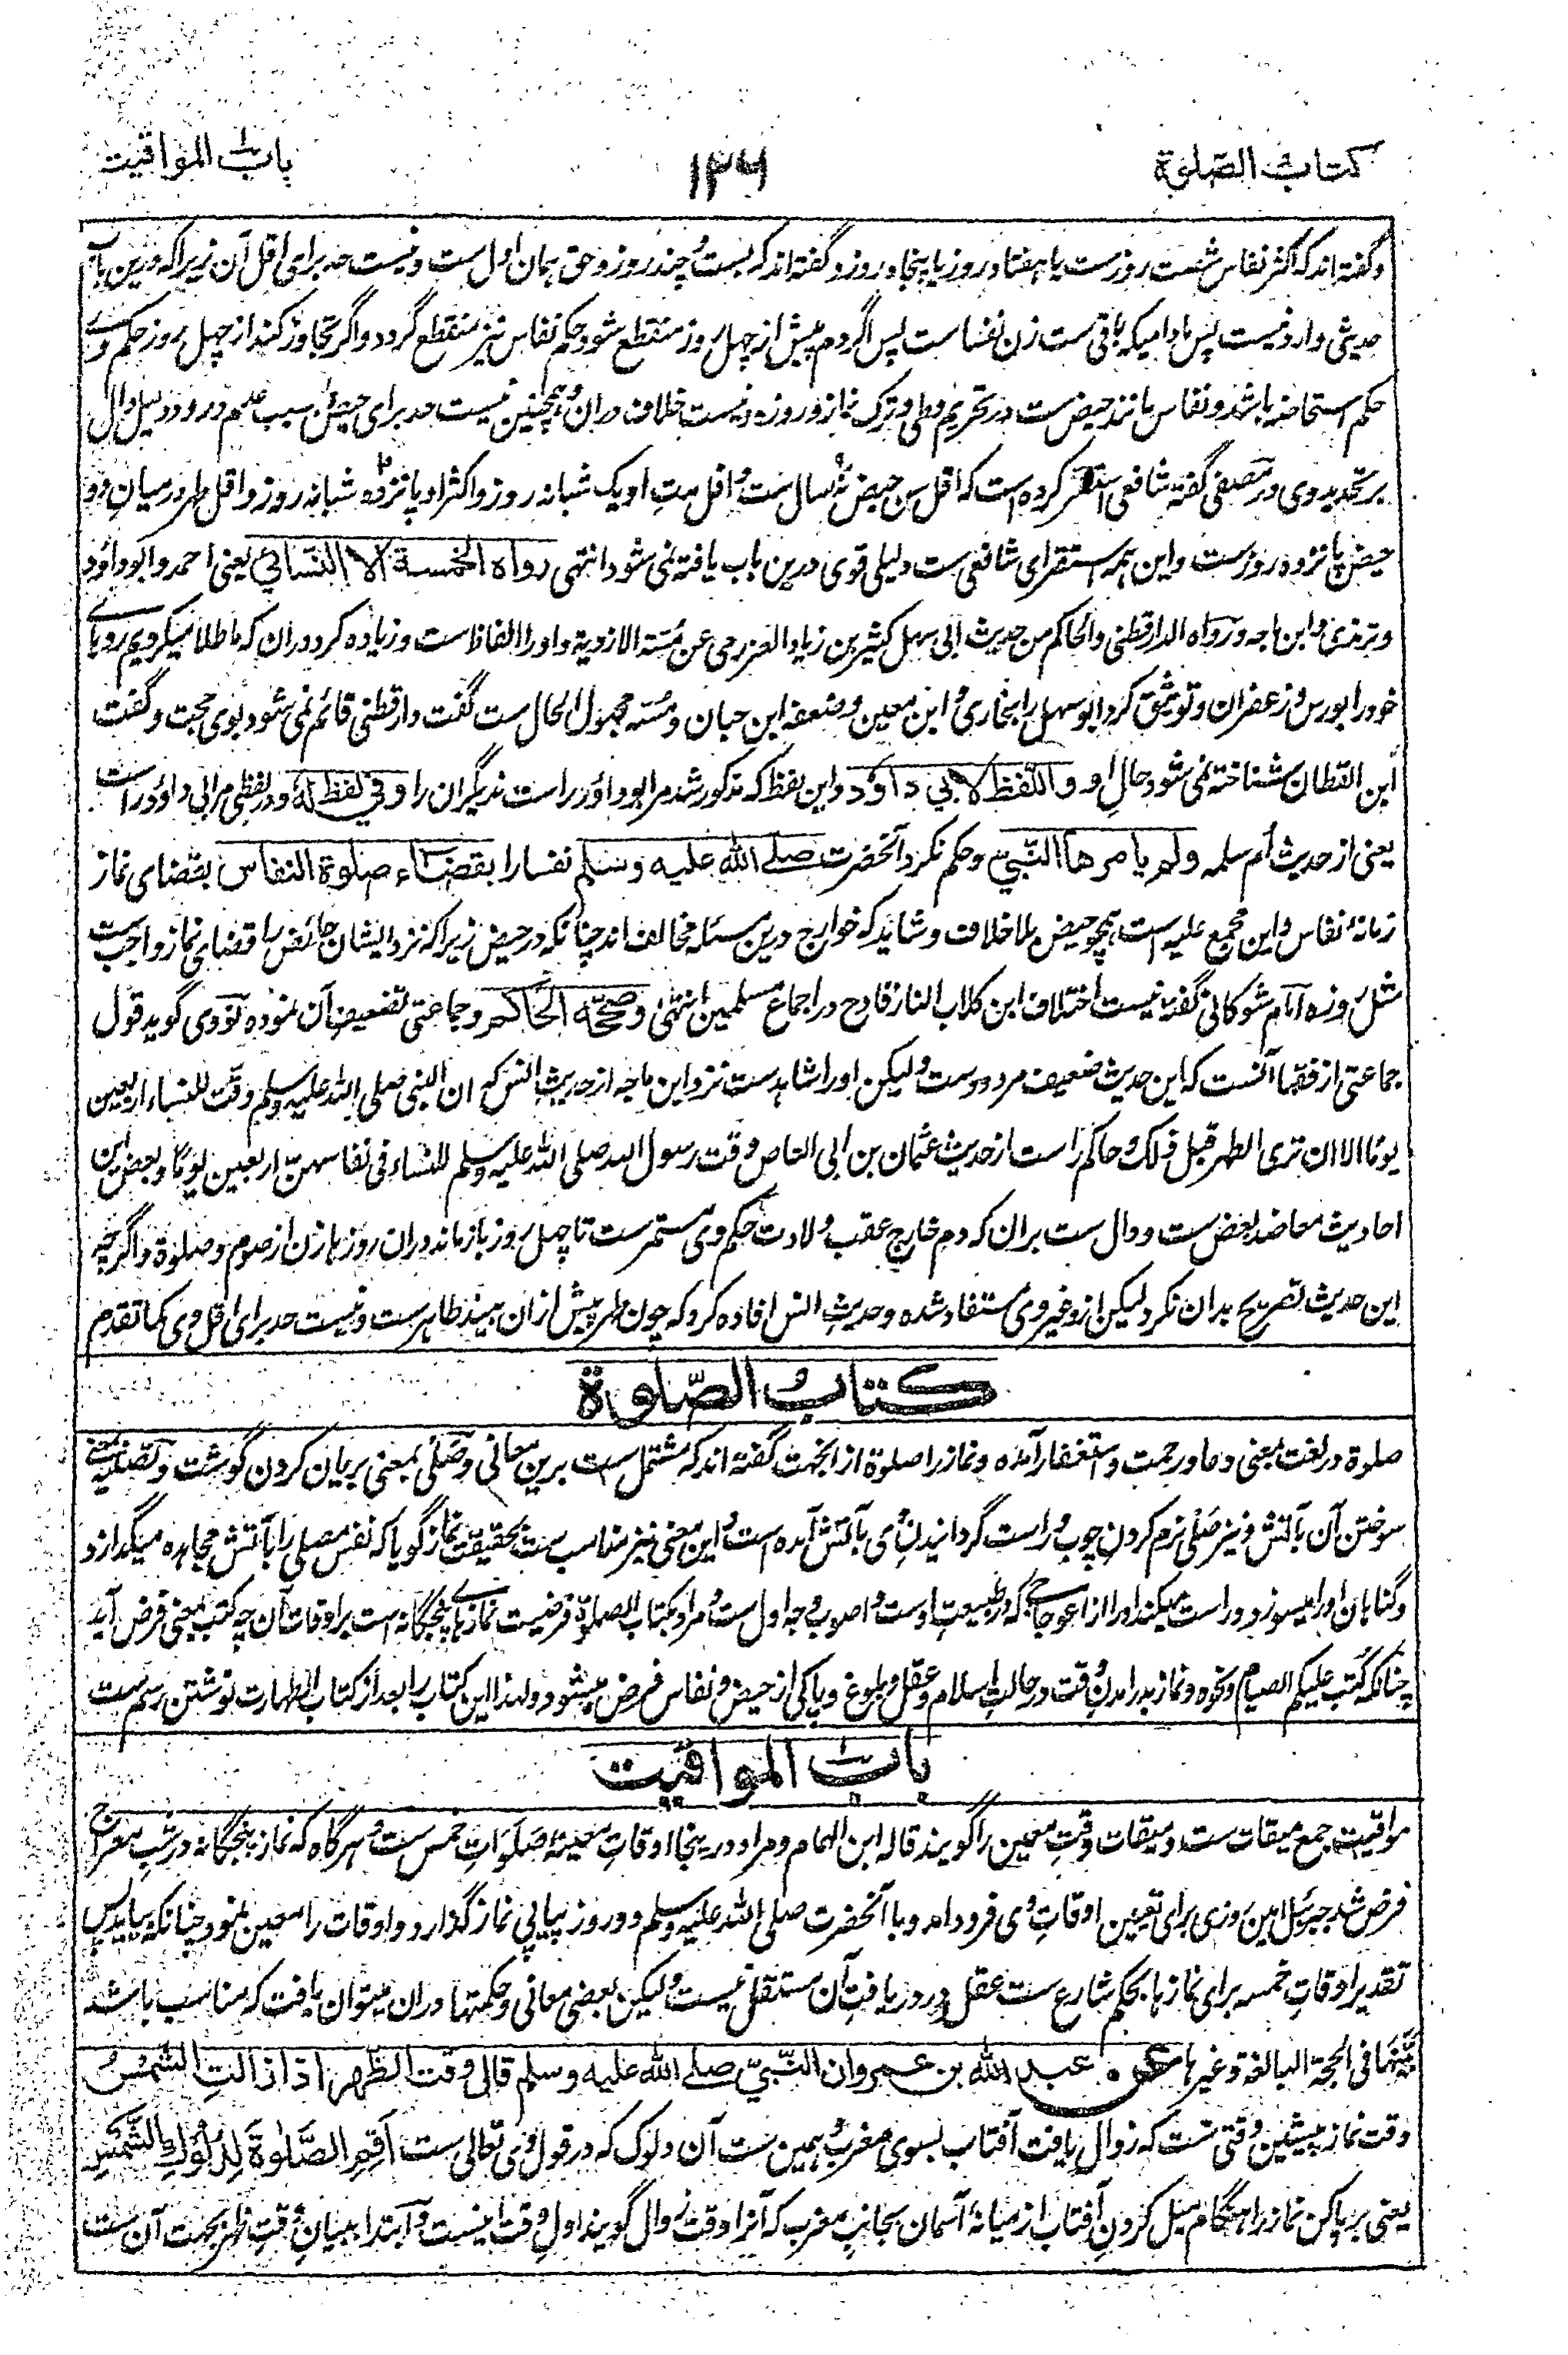 کتاب الصّلوة
۱۲۶
باب المواقیت
و گفته اند که اکثر نفاس شصت روزست یا هفتاد روز یا پنجاه روز و گفته اند که بست و چند روز و حق همان اول ست و نیست حد برای اقل آن زیراکه درین باب
حدیثی وارد نیست پس مادامیکه باقی ست زن نفسا ست پس اگر دم پیش از چهل روز منقطع شود حکم نفاس نیز منقطع گردد و اگر تجاوز کند از چهل روز حکم وے
حکم استحاضه باشد و نفاس مانند حیض ست در تحریم وطی و ترک نماز و روزه و نیست خلاف دران و همچنین نیست حد برای حیض بسبب عدم ورود دلیل دال
بر تحدید وی و در مصفی گفته شافعی استقرا کرده است که اقل سن حیض نُه سال ست و اقل مدت او یک شبانه روز و اکثر او پانزده شبانه روز و اقل طهر در میان دو
حیض پانزده روزست و این همه استقرای شافعی ست دلیلی قوی درین باب یافته نمی شود انتهی رواه الخمسة الا النسائي یعنی احمد و ابو داؤد
و ترمذی و ابن ماجه و رواه الدارقطنی والحاکم من حدیث ابی سهل کثیر بن زیاد العزرمی عن مُسّة الازدیة و او را الفاظ ست و زیاده کرد دران که ما طلا میکردیم رویهاے
خود را بورس و زعفران و توثیق کرد ابو سهل را بخاری و ابن معین و ضعفه ابن حبان و مُسّه مجهول الحال ست گفت دارقطنی قائم نمی شود بوی حجت و گفت
ابن القطان شناخته نمی شود حال او واللفظ لابي داؤد و این لفظ که مذکور شد مر ابو داؤد راست نه دیگران را و في لفظ له و در لفظی مر ابی داؤد راست
یعنی از حدیث ام سلمه ولم یامرها النّبيّ و حکم نکرد آنحضرت صلے الله علیه وسلم نفسا را بقضاء صلوة النفاس بقضای نماز
زمانهٔ نفاس و این مجمع علیه است همچو حیض بلا خلاف و شاید که خوارج درین مسئله مخالف اند چنانکه در حیض زیراکه نزد ایشان حائض را قضای نماز واجب ست
مثل روزه امام شوکانی گفته نیست اختلاف ابن کلاب النار قادح در اجماع مسلمین انتهی و صحّحه الحاکم و جماعتی تضعیف آن نموده نووی گوید قول
جماعتی از فقها آنست که این حدیث ضعیف مردودست ولیکن او را شاهدست نزد ابن ماجه از حدیث انس که ان النبی صلی الله علیه وسلم وقّت للنساء اربعین
یومًا الا ان تری الطهر قبل ذلک و حاکم راست از حدیث عثمان بن ابی العاص وقت رسول الله صلی الله علیه وسلم للنساء فی نفاسهنّ اربعین یومًا و بعض این
احادیث معاضد بعض ست و دال ست بران که دم خارج عقب ولادت حکم وی مستمرست تا چهل روز باز ماند دران روزها زن از صوم و صلوة و اگرچه
این حدیث تصریح بدان نکرد لیکن از و غیر وی مستفاد شده و حدیث انس افاده کرد که چون طهر پیش ازان بیند طاهرست و نیست حد برای اقل وی کما تقدم
کتابُ الصّلوة
صلوة در لغت بمعنی دعا و رحمت و استغفار آمده و نماز را صلوة ازانجهت گفته اند که مشتمل است برین معانی و صَلْی بمعنی بریان کردن گوشت و تصلیه بمعنی
سوختن آن بآتش و نیز صَلْی نرم کردن چوب و راست گردانیدن وی بآتش آمده است و این معنی نیز مناسب ست بحقیقت نماز گویا که نفس مصلی را بآتش مجاهده میگدازد
و گناهان او را میسوزد و راست میکند او را از اعوجاجے که در طبیعت اوست و اصوب وجه اول ست و مراد بکتاب الصلوة فرضیت نمازهاے پنجگانه است بر اوقات آن چه کتب بمعنی فرض آید
چنانکه کتب علیکم الصیام و نحوه و نماز بدرامدن وقت در حالت اسلام و عقل و بلوغ و پاکی از حیض و نفاس فرض میشود ولهذا این کتاب را بعد از کتاب الطهارت نوشتن رسم ست
باب المواقیت
مواقیت جمع میقات ست و میقات وقت معین را گویند قاله ابن الهمام و مراد درینجا اوقات معینهٔ صلوات خمس ست و هرگاه که نماز پنجگانه در شب معراج
فرض شد جبرئیل امین روزی برای تعیین اوقات وی فرود امد و با آنحضرت صلی الله علیه وسلم دو روز پیاپی نماز گذارد و اوقات را معین نمود چنانکه بیاید پس
تقدیر اوقات خمسه برای نمازها بحکم شارع ست عقل در دریافت آن مستقل نیست ولیکن بعضی معانی و حکمتها دران میتوان یافت که مناسب باشد
بیّنها فی الحجة البالغة و غیرها عن عبد الله بن عمرو ان النّبيّ صلے الله علیه وسلم قال وقت الظهر اذا زالتِ الشمسُ
وقت نماز پیشین وقتی ست که زوال یافت آفتاب بسوی مغرب و همین ست آن دلوک که در قول وی تعالی ست اَقِمِ الصَّلوٰةَ لِدُلُوْكِ الشَّمْسِ
یعنی بر پا کن نماز را هنگام میل کردن آفتاب از میانهٔ آسمان بجانب مغرب که آنرا وقت زوال گویند اول وقت اینست و ابتدا ببیان وقت ظهر بجهت آن ست